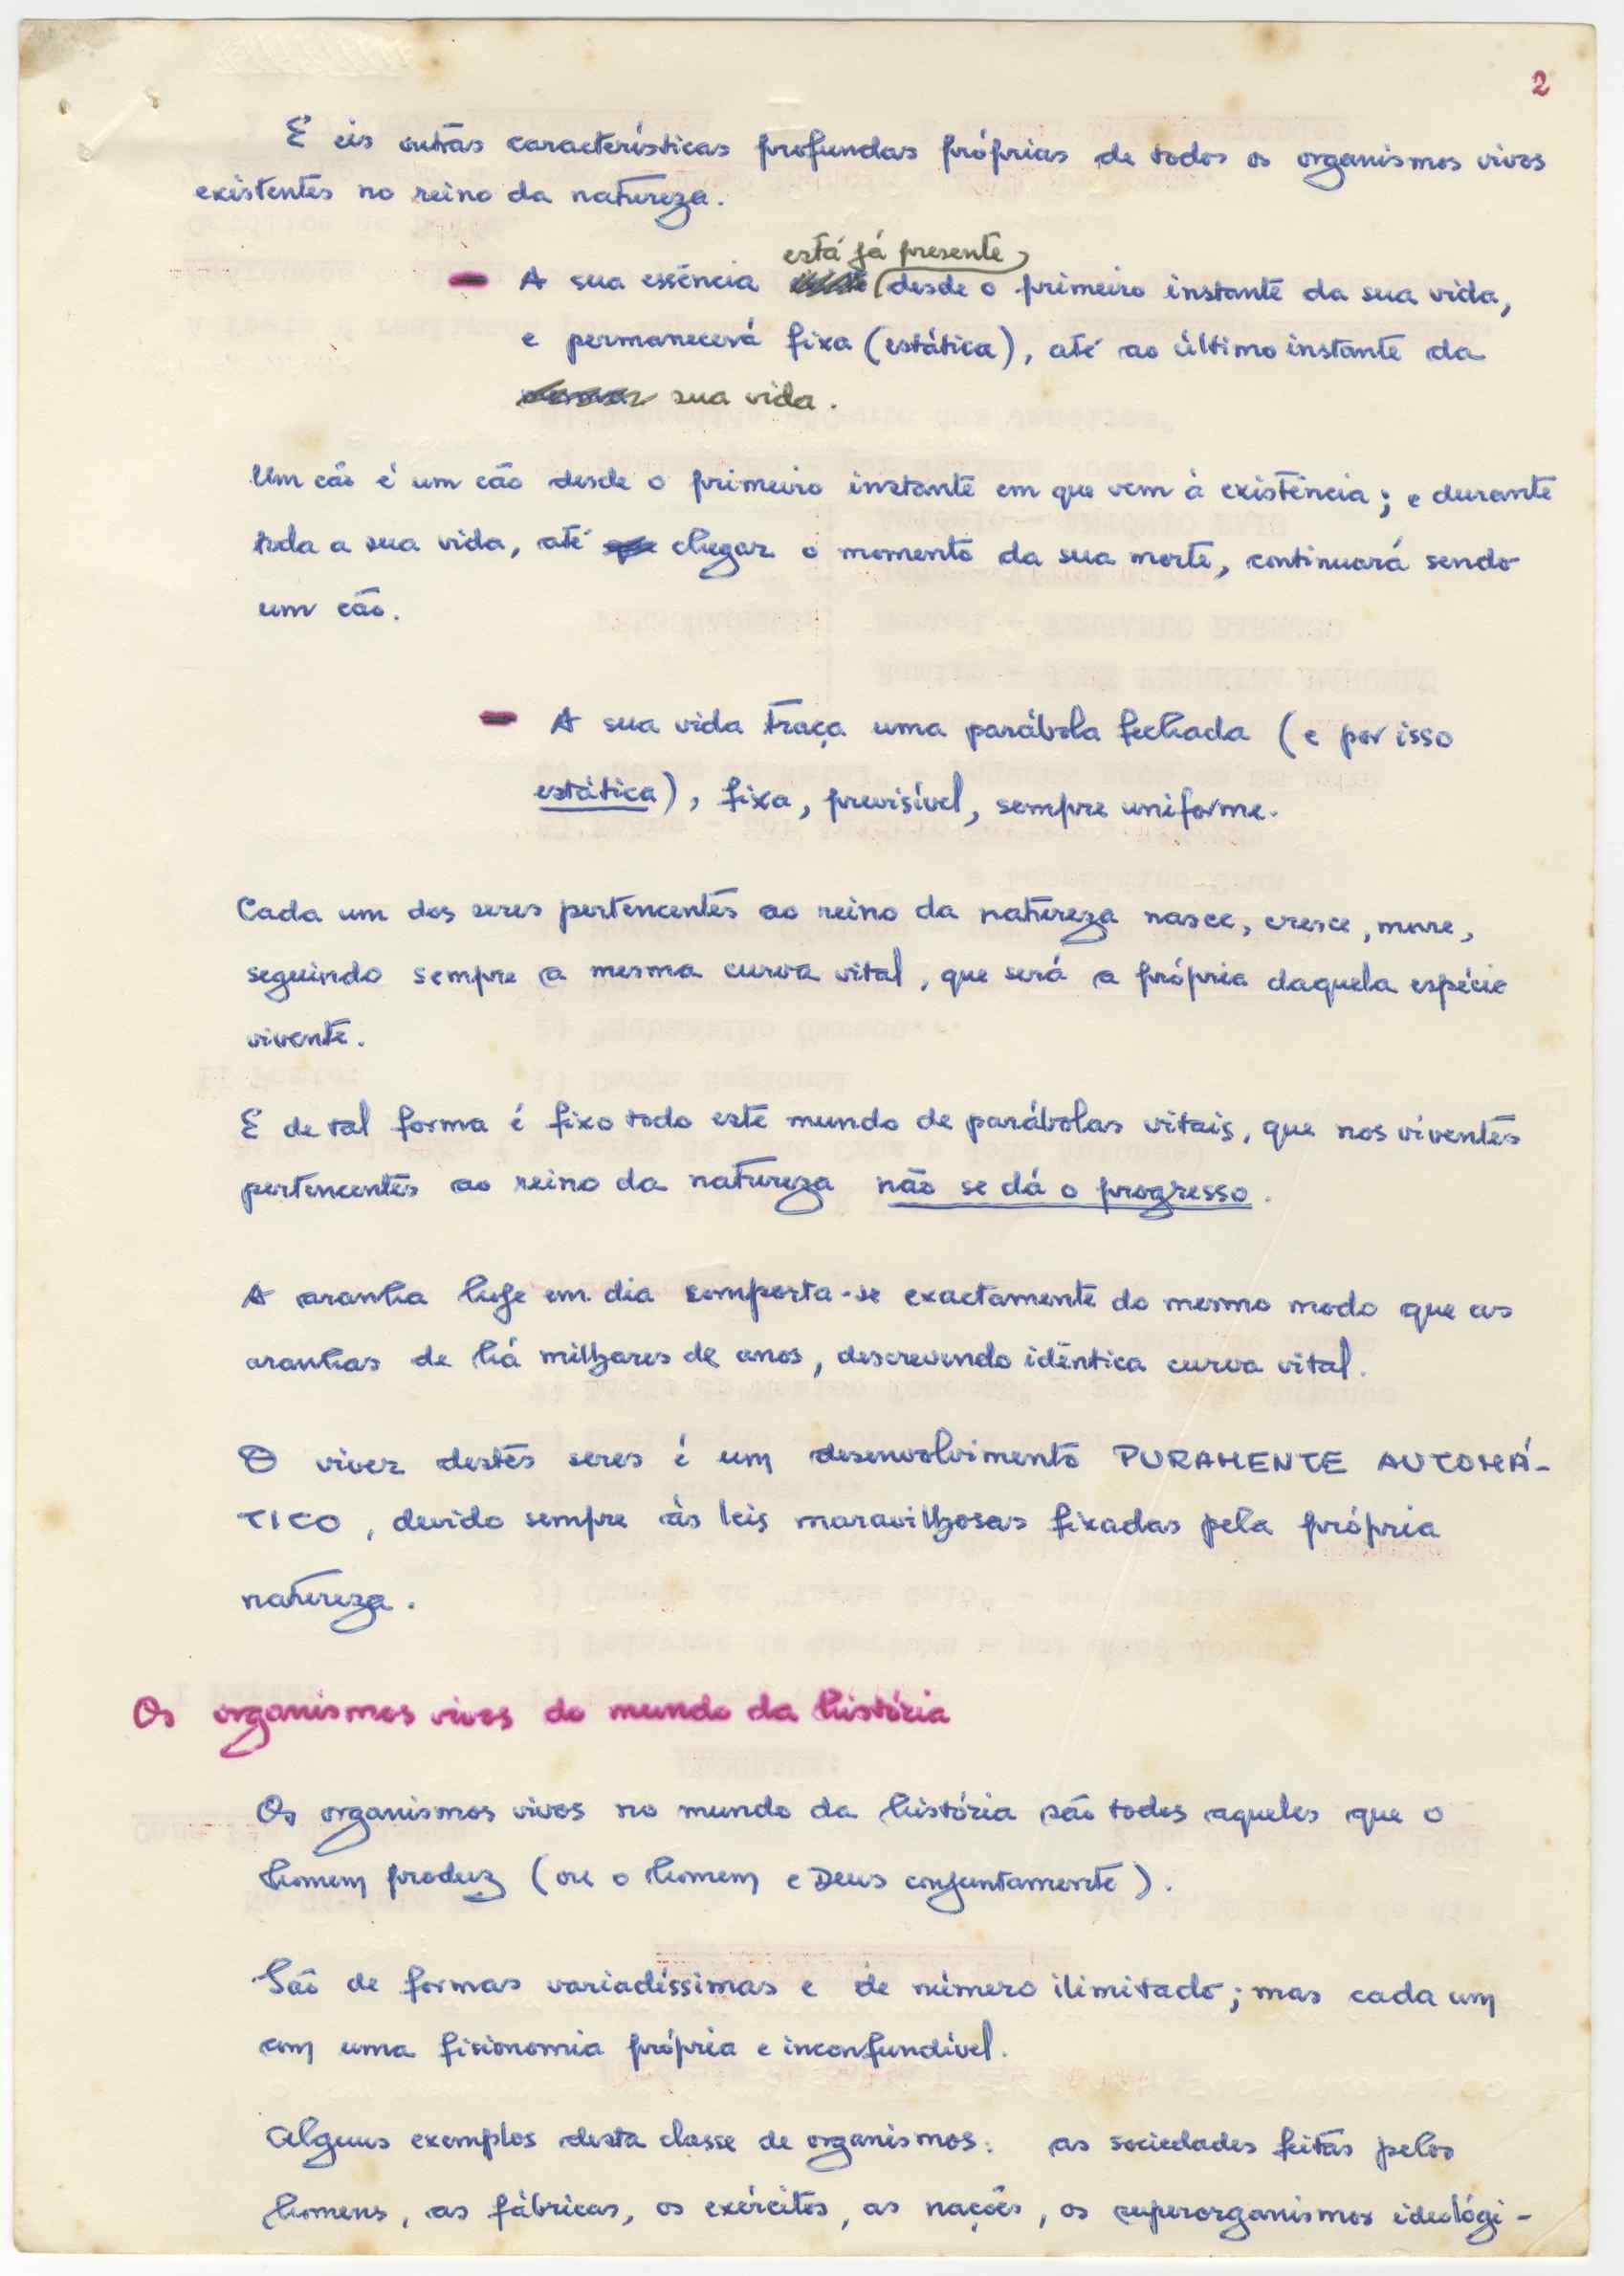 2
E eis outras características profundas próprias de todos os organismos vivos
existentes no reino da natureza.
está já presente,
- A sua essência desde o primeiro instante da sua vida,
e permanecerá fixa (estática), até ao último instante da
sua vida.
Um cão é um cão desde o primeiro instante em que vem à existência; e durante
toda a sua vida, até chegar o momento da sua morte, continuará sendo
um cão.
- A sua vida traça uma parábola fechada (e por isso
estática), fixa, previsível, sempre uniforme.
Cada um dos seres pertencentes ao reino da natureza nasce, cresce, morre,
seguindo sempre a mesma curva vital, que será a própria daquela espécie
vivente.
E de tal forma é fixo todo este mundo de parábolas vitais, que nos viventes
pertencentes ao reino da natureza não se dá o progresso.
A aranha hoje em dia comporta-se exactamente do mesmo modo que as
aranhas de há milhares de anos, descrevendo idêntica curva vital.
O viver destes seres é um desenvolvimento PURAMENTE AUTOMÁ-
TICO, devido sempre às leis maravilhosas fixadas pela própria
natureza.
Os organismos vivos do mundo da história
Os organismos vivos no mundo da história são todos aqueles que o
homem produz (ou o homem e Deus conjuntamente).
São de formas variadíssimas e de número ilimitado; mas cada um
com uma fisionomia própria e inconfundível.
Alguns exemplos desta classe de organismos: as sociedades feitas pelos
homens, as fábricas, os exércitos, as nações, os superorganismos ideológi-